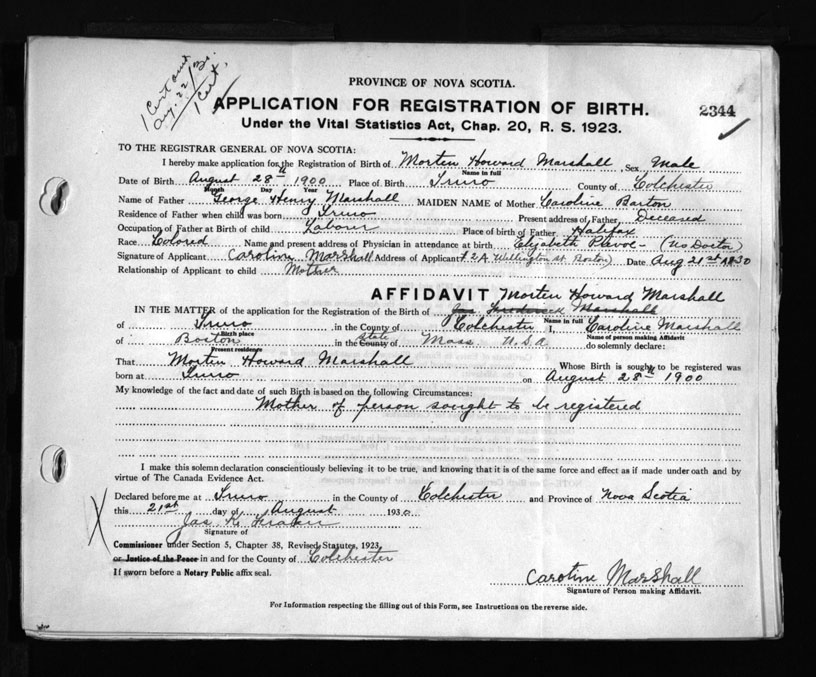 1 Cert and
Aug. 22/30.
1 Cert.
PROVINCE OF NOVA SCOTIA.
APPLICATION FOR REGISTRATION OF BIRTH.
2344
Under the Vital Statistics Act, Chap. 20, R. S. 1923.
TO THE REGISTRAR GENERAL OF NOVA SCOTIA:
I hereby make application for the Registration of Birth of Morten Howard Marshall Sex Male
Name in full
Date of Birth August 28th 1900 Place of Birth Truro County of Colchester
Month Day Year
Name of Father George Henry Marshall MAIDEN NAME of Mother Caroline Barton
Residence of Father when child was born Truro Present address of Father Deceased
Occupation of Father at Birth of child Labourer Place of birth of Father Halifax
Race Colored Name and present address of Physician in attendance at birth Elizabeth (No Doctor)
Signature of Applicant Caroline Marshall Address of Applicant 72A Wellington St. Boston) Date Aug 21st 1930
Relationship of Applicant to child Mother
AFFIDAVIT Morten Howard Marshall
IN THE MATTER of the application for the Registration of Birth of Jas Frederick Marshall
Name in full
of Truro in the County of Colchester I, Caroline Marshall
Birth place Name of person making Affidavit
of Boston in the County State of Mass U.S.A. do solemnly declare:
Present residence
That Morten Howard Marshall Whose Birth is sought to be registered was
born at Truro on August 28th 1900
My knowledge of the fact and date of such Birth is based on the following Circumstances:
Mother of person sought to be registered
I make this solemn declaration conscientiously believing it to be true, and knowing that it is of the same force and effect as if made under oath and by
virtue of The Canada Evidence Act.
Declared before me at Truro in the County of Colchester and Province of Nova Scotia
this 21st day of August 1930.
Jas
Signature of
Commissioner under Section 5, Chapter 38, Revised Statutes, 1923,
or Justice of the Peace in and for the County of Colchester
If sworn before a Notary Public affix seal.
Caroline Marshall
Signature of Person making Affidavit.
For Information respecting the filling out of this Form, see Instructions on the reverse side.